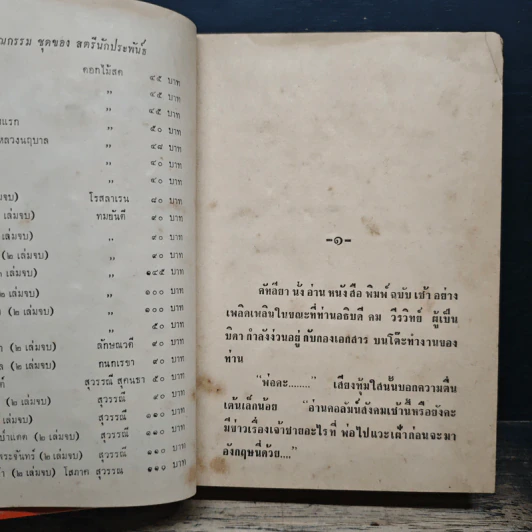 ณกรรม ชุดของ สตรีนักประพันธ์
ดอกไม้สด ๔๕ บาท
,, ๔๕ บาท
,, ๔๕ บาท
แรก ,, ๕๐ บาท
หลวงนฤบาล ,, ๔๘ บาท
,, ๔๐ บาท
,, ๔๐ บาท
เล่มจบ) โรสลาเรน ๘๐ บาท
๒ เล่มจบ) ทมยันตี ๙๐ บาท
เล่มจบ) ,, ๙๐ บาท
(๒ เล่มจบ) ,, ๙๐ บาท
๒ เล่มจบ) ,, ๑๔๕ บาท
(๒ เล่มจบ) ,, ๑๐๐ บาท
๒ เล่มจบ) ,, ๑๐๐ บาท
,, ๕๐ บาท
(๒ เล่มจบ) ลักษณวดี ๙๐ บาท
(๒ เล่มจบ) กนกเรขา ๙๐ บาท
สุวรรณี สุคนธา ๕๐ บาท
(๒ เล่มจบ) สุวรรณี ๙๐ บาท
เล่มจบ) สุวรรณี ๑๑๐ บาท
(๒ เล่มจบ) สุวรรณี ๑๑๐ บาท
พระจันทร์ (๒ เล่มจบ) สุวรรณี ๑๑๐ บาท
(๒ เล่มจบ) โสภาค สุวรรณ ๑๑๐ บาท
-๑-
คัทลียา นั่ง อ่าน หนังสือ พิมพ์ ฉบับ เช้า อย่าง
เพลิดเพลินในขณะที่ท่านอธิบดี คม วีรวิทย์ ผู้เป็น
บิดา กำลังง่วนอยู่ กับกองเอกสาร บนโต๊ะทำงานของ
ท่าน
"พ่อคะ........" เสียงทุ้มใสนั้นบอกความตื่น
เต้นเล็กน้อย "อ่านคอลัมน์สังคมเช้านี้หรือยังคะ
มีข่าวเรื่องเจ้าชายอะไรที่ พ่อไปแวะเฝ้าก่อนจะมา
อังกฤษนี่ด้วย...."